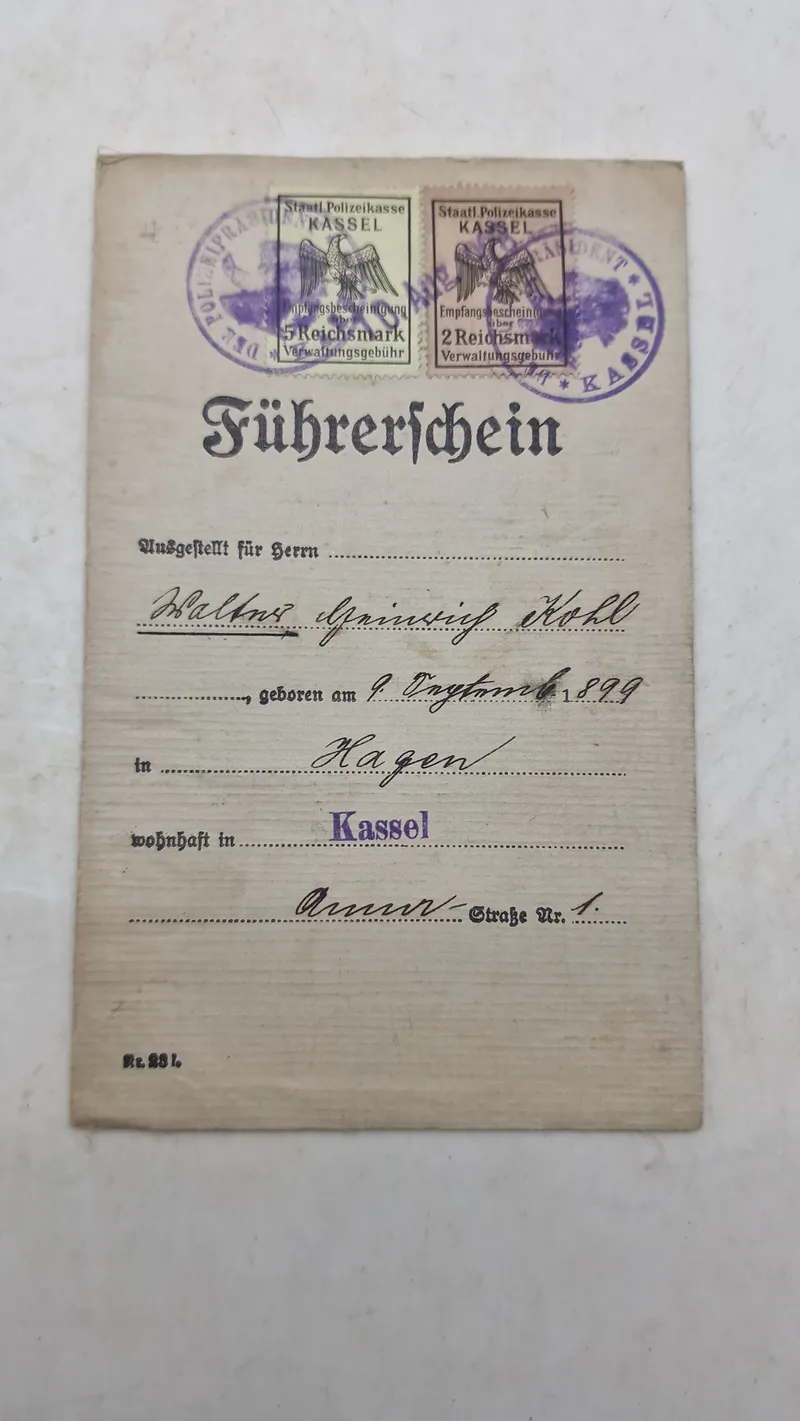 Staatl. Polizeikasse
KASSEL
Empfangsbescheinigung
über
5 Reichsmark
Verwaltungsgebühr
Staatl. Polizeikasse
KASSEL
Empfangsbescheinigung
über
2 Reichsmark
Verwaltungsgebühr
DER POLIZEIPRÄSIDENT
PRÄSIDENT * KASSEL *
Aug.
Führerschein
Ausgestellt für Herrn
Walter Heinrich Kohl
, geboren am 9. Septemb. 1899
in Hagen
wohnhaft in Kassel
Straße Nr. 1.
Nr. 231.